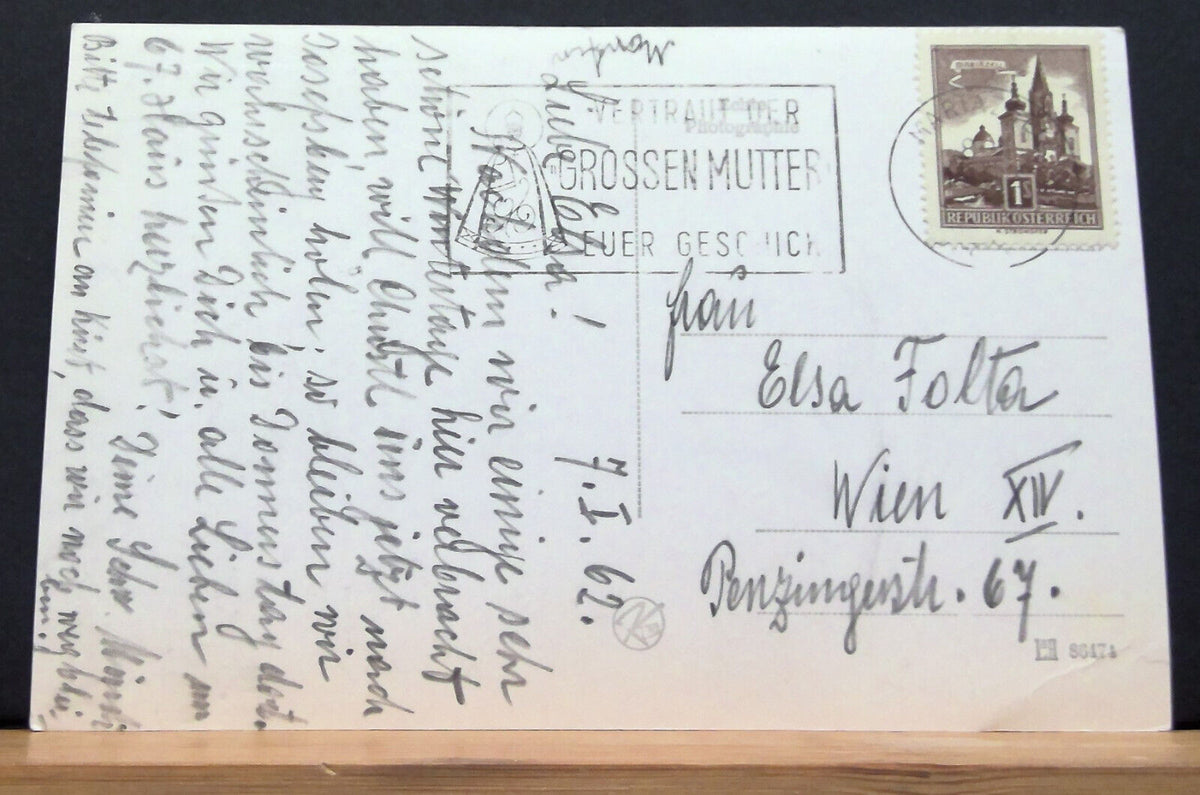 Liebe Elsa! 7. I. 62.
Nachdem wir einige sehr
schöne Wintertage hier verbracht
haben, will Christl uns jetzt nach
Josefsberg holen; so bleiben wir
wahrscheinlich bis Donnerstag dort.
Wir grüssen Dich u. alle Lieben
67. Hans herzlichst! Deine Schw.
Bitte telefonier an dass wir noch wegblei-
ben!
VERTRAUT DER
GROSSEN MUTTER
EUER GESCHICK
Echte
Photographie
MARIAZELL
MARIA
1 S
REPUBLIK ÖSTERREICH
Frau
Elsa Folta
Wien XIV.
Penzingerstr. 67.
86474